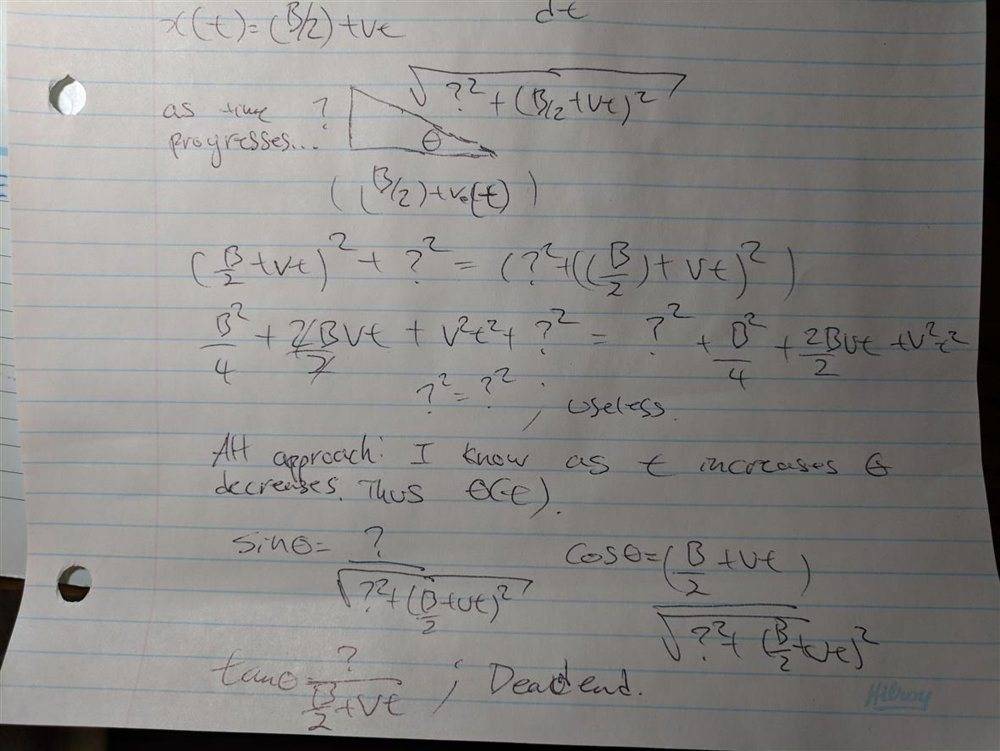 x(t)=(B/2)+vt
dt
√?²+(B/2+vt)²
as time ?
progresses...
θ
((B/2)+v₀(t))
(B/2+vt)²+?²=(?²+((B/2)+vt)²)
B²/4+2BVt/2+v²t²+?²=?²+B²/4+2Bvt/2+v²t²
?²=?²; useless.
Alt approach: I know as t increases θ
decreases. Thus θ(t).
sinθ=?/√?²+(B/2+vt)² cosθ=(B/2+vt)/√?²+(B/2+vt)²
tanθ=?/B/2+vt; Deadend.
Hilroy